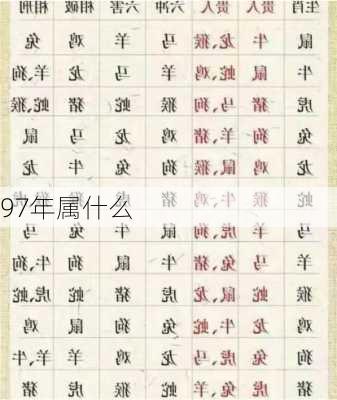 生肖 贵人 贵人 六冲 六害 相破 相刑
鼠 牛 龙、猴 马 羊 鸡 兔
牛 鼠 蛇、鸡 羊 马 龙 羊、狗
虎 猪 马、狗 猴 蛇 猪 蛇、猴
兔 狗 羊、猪 鸡 龙 马 鼠
龙 鸡 鼠、猴 狗 兔 牛 龙
蛇 猴 牛、鸡 猪
97年属什么
马 羊 虎、狗 鼠 牛 兔 马
羊 马 兔、猪 牛 鼠 狗 牛、狗
猴 蛇 鼠、龙 虎 猪 蛇 虎、蛇
鸡 龙 牛、蛇 兔 狗 鼠 鸡
狗 兔 虎、马 龙 鸡 羊 牛、羊
猪 虎 兔、羊 蛇 猴 虎 猪